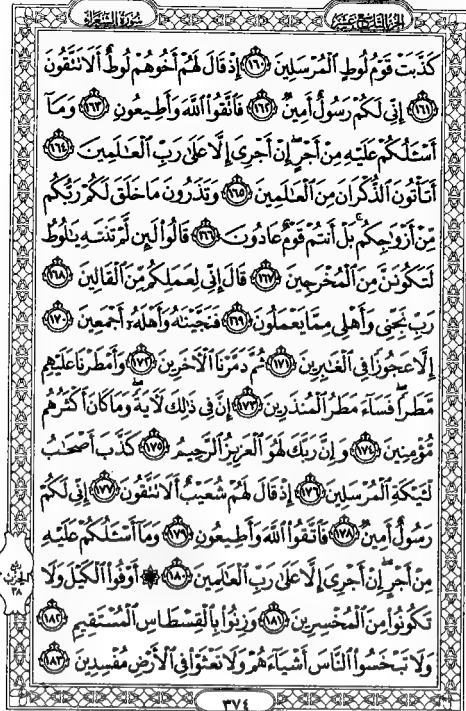 الجزء التاسع عشر سورة الشعراء
كَذَّبَتْ قَوْمُ لُوطٍ ٱلْمُرْسَلِينَ ١٦٠ إِذْ قَالَ لَهُمْ أَخُوهُمْ لُوطٌ أَلَا تَتَّقُونَ
١٦١ إِنِّي لَكُمْ رَسُولٌ أَمِينٌ ١٦٢ فَٱتَّقُوا۟ ٱللَّهَ وَأَطِيعُونِ ١٦٣ وَمَآ
أَسْـَٔلُكُمْ عَلَيْهِ مِنْ أَجْرٍ إِنْ أَجْرِىَ إِلَّا عَلَىٰ رَبِّ ٱلْعَـٰلَمِينَ ١٦٤
أَتَأْتُونَ ٱلذُّكْرَانَ مِنَ ٱلْعَـٰلَمِينَ ١٦٥ وَتَذَرُونَ مَا خَلَقَ لَكُمْ رَبُّكُم
مِّنْ أَزْوَٰجِكُم بَلْ أَنتُمْ قَوْمٌ عَادُونَ ١٦٦ قَالُوا۟ لَئِن لَّمْ تَنتَهِ يَـٰلُوطُ
لَتَكُونَنَّ مِنَ ٱلْمُخْرَجِينَ ١٦٧ قَالَ إِنِّى لِعَمَلِكُم مِّنَ ٱلْقَالِينَ ١٦٨
رَبِّ نَجِّنِى وَأَهْلِى مِمَّا يَعْمَلُونَ ١٦٩ فَنَجَّيْنَـٰهُ وَأَهْلَهُۥٓ أَجْمَعِينَ ١٧٠
إِلَّا عَجُوزًا فِى ٱلْغَـٰبِرِينَ ١٧١ ثُمَّ دَمَّرْنَا ٱلْـَٔاخَرِينَ ١٧٢ وَأَمْطَرْنَا عَلَيْهِم
مَّطَرًا فَسَآءَ مَطَرُ ٱلْمُنذَرِينَ ١٧٣ إِنَّ فِى ذَٰلِكَ لَـَٔايَةً وَمَا كَانَ أَكْثَرُهُم
مُّؤْمِنِينَ ١٧٤ وَإِنَّ رَبَّكَ لَهُوَ ٱلْعَزِيزُ ٱلرَّحِيمُ ١٧٥ كَذَّبَ أَصْحَـٰبُ
لْـَٔيْكَةِ ٱلْمُرْسَلِينَ ١٧٦ إِذْ قَالَ لَهُمْ شُعَيْبٌ أَلَا تَتَّقُونَ ١٧٧ إِنِّى لَكُمْ
رَسُولٌ أَمِينٌ ١٧٨ فَٱتَّقُوا۟ ٱللَّهَ وَأَطِيعُونِ ١٧٩ وَمَآ أَسْـَٔلُكُمْ عَلَيْهِ
مِنْ أَجْرٍ إِنْ أَجْرِىَ إِلَّا عَلَىٰ رَبِّ ٱلْعَـٰلَمِينَ ١٨٠ ۞ أَوْفُوا۟ ٱلْكَيْلَ وَلَا
تَكُونُوا۟ مِنَ ٱلْمُخْسِرِينَ ١٨١ وَزِنُوا۟ بِٱلْقِسْطَاسِ ٱلْمُسْتَقِيمِ ١٨٢
وَلَا تَبْخَسُوا۟ ٱلنَّاسَ أَشْيَآءَهُمْ وَلَا تَعْثَوْا۟ فِى ٱلْأَرْضِ مُفْسِدِينَ ١٨٣
الحزب
٣٨
٣٧٤